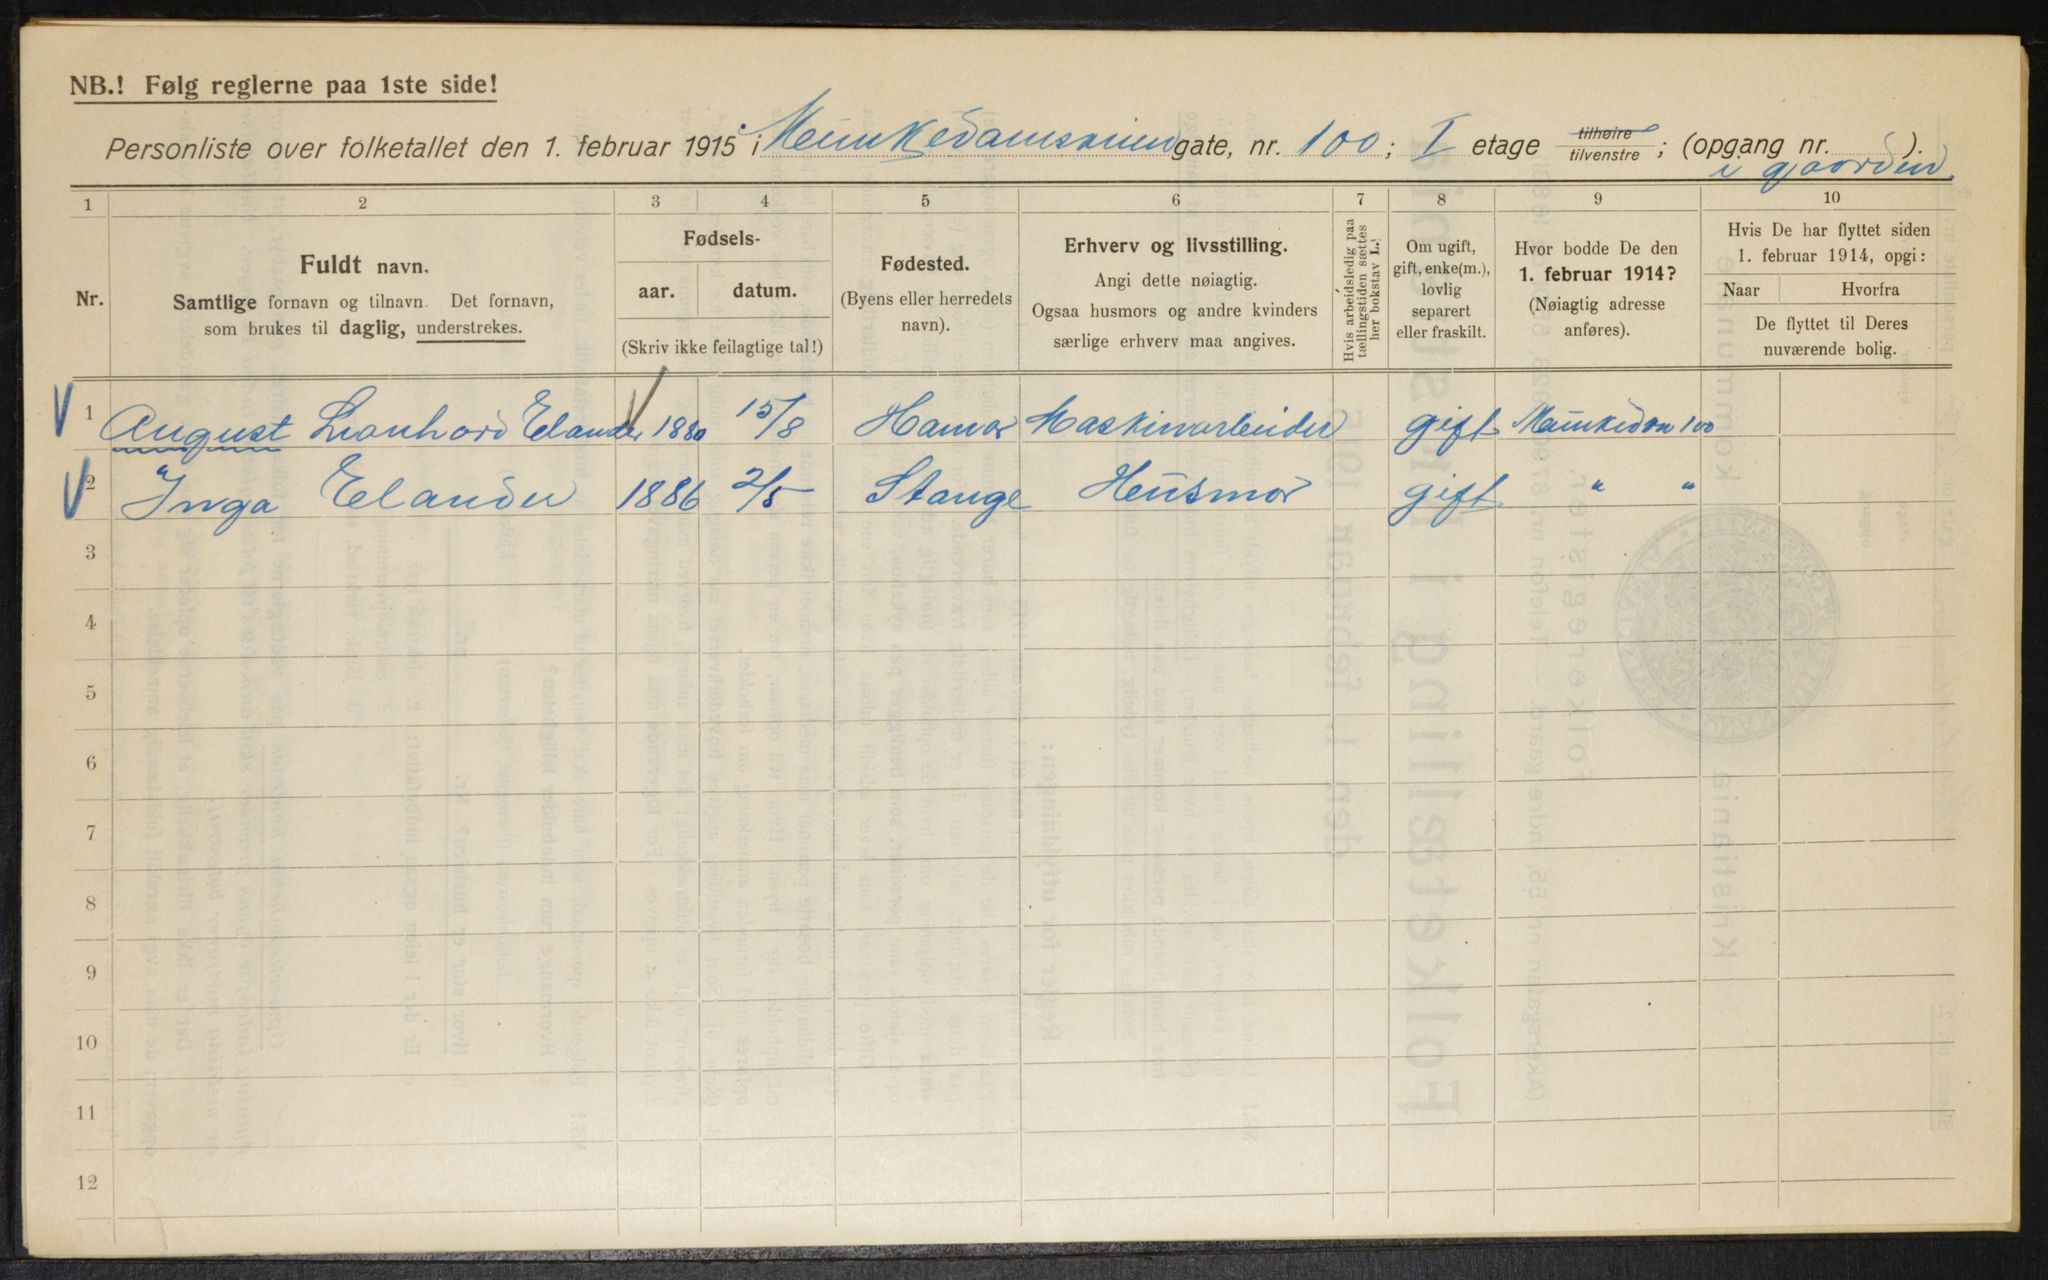 NB.! Følg reglerne paa 1ste side!
Personliste over folketallet den 1. februar 1915 i Munkedamsveien gate, nr. 100; I etage tilhøire tilvenstre; (opgang nr. ).
i gaarden
1 2 3 4 5 6 7 8 9 10
Nr.
Fuldt navn.
Samtlige fornavn og tilnavn. Det fornavn,
som brukes til daglig, understrekes.
Fødsels-
aar. datum.
(Skriv ikke feilagtige tal!)
Fødested.
(Byens eller herredets
navn).
Erhverv og livsstilling.
Angi dette nøiagtig.
Ogsaa husmors og andre kvinders
særlige erhverv maa angives.
Hvis arbeidsledig paa
tællingstiden sættes
her bokstav L.!
Om ugift,
gift, enke(m.),
lovlig
separert
eller fraskilt.
Hvor bodde De den
1. februar 1914?
(Nøiagtig adresse
anføres).
Hvis De har flyttet siden
1. februar 1914, opgi:
Naar Hvorfra
De flyttet til Deres
nuværende bolig.
1 August Leonhard Elander 1880 15/8 Hamar Maskinarbeider gift Munkedm 100
2 Inga Elander 1886 2/5 Stange Husmor gift " "
3
4
5
6
7
8
9
10
11
12